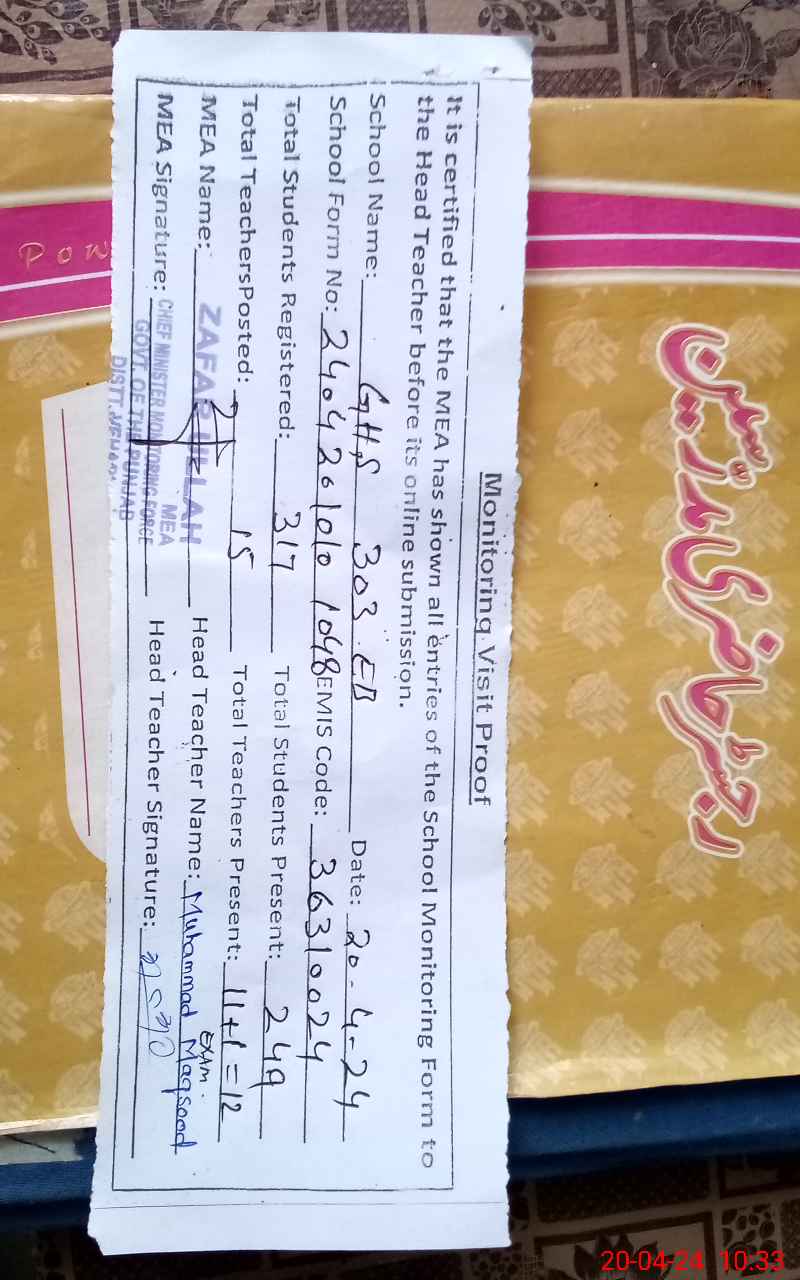 Monitoring Visit Proof
It is certified that the MEA has shown all entries of the School Monitoring Form to
the Head Teacher before its online submission.
School Name: GHS 303.EB Date: 20-4-24
School Form No: 2404201010 1048 EMIS Code: 36310024
Total Students Registered: 317 Total Students Present: 249
Total TeachersPosted: 15 Total Teachers Present: 11+1=12
EXAM.
MEA Name: ZAFAR ULLAH Head Teacher Name: Muhammad Maqsood
MEA Signature: Head Teacher Signature:
MEA
CHIEF MINISTER MONITORING FORCE
GOVT. OF THE PUNJAB
DISTT.
رجسٹر حاضری مدرسین
POW
20-04-24 10:33